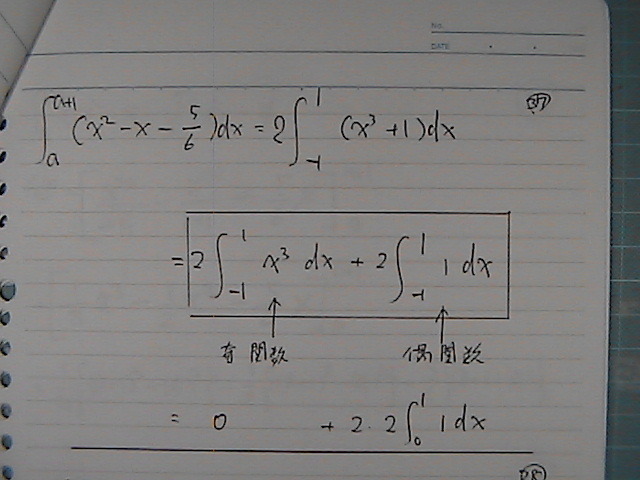 No.
DATE
∫_a^{a+1} (x² - x - 5/6)dx = 2∫_{-1}^{1} (x³ + 1)dx
= 2∫_{-1}^{1} x³ dx + 2∫_{-1}^{1} 1 dx
奇関数 偶関数
= 0 + 2・2∫_0^1 1 dx